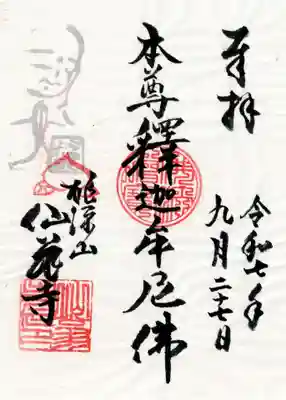 奉拝
令和七年
九月二十七日
本尊釋迦牟尼佛
仙花寺